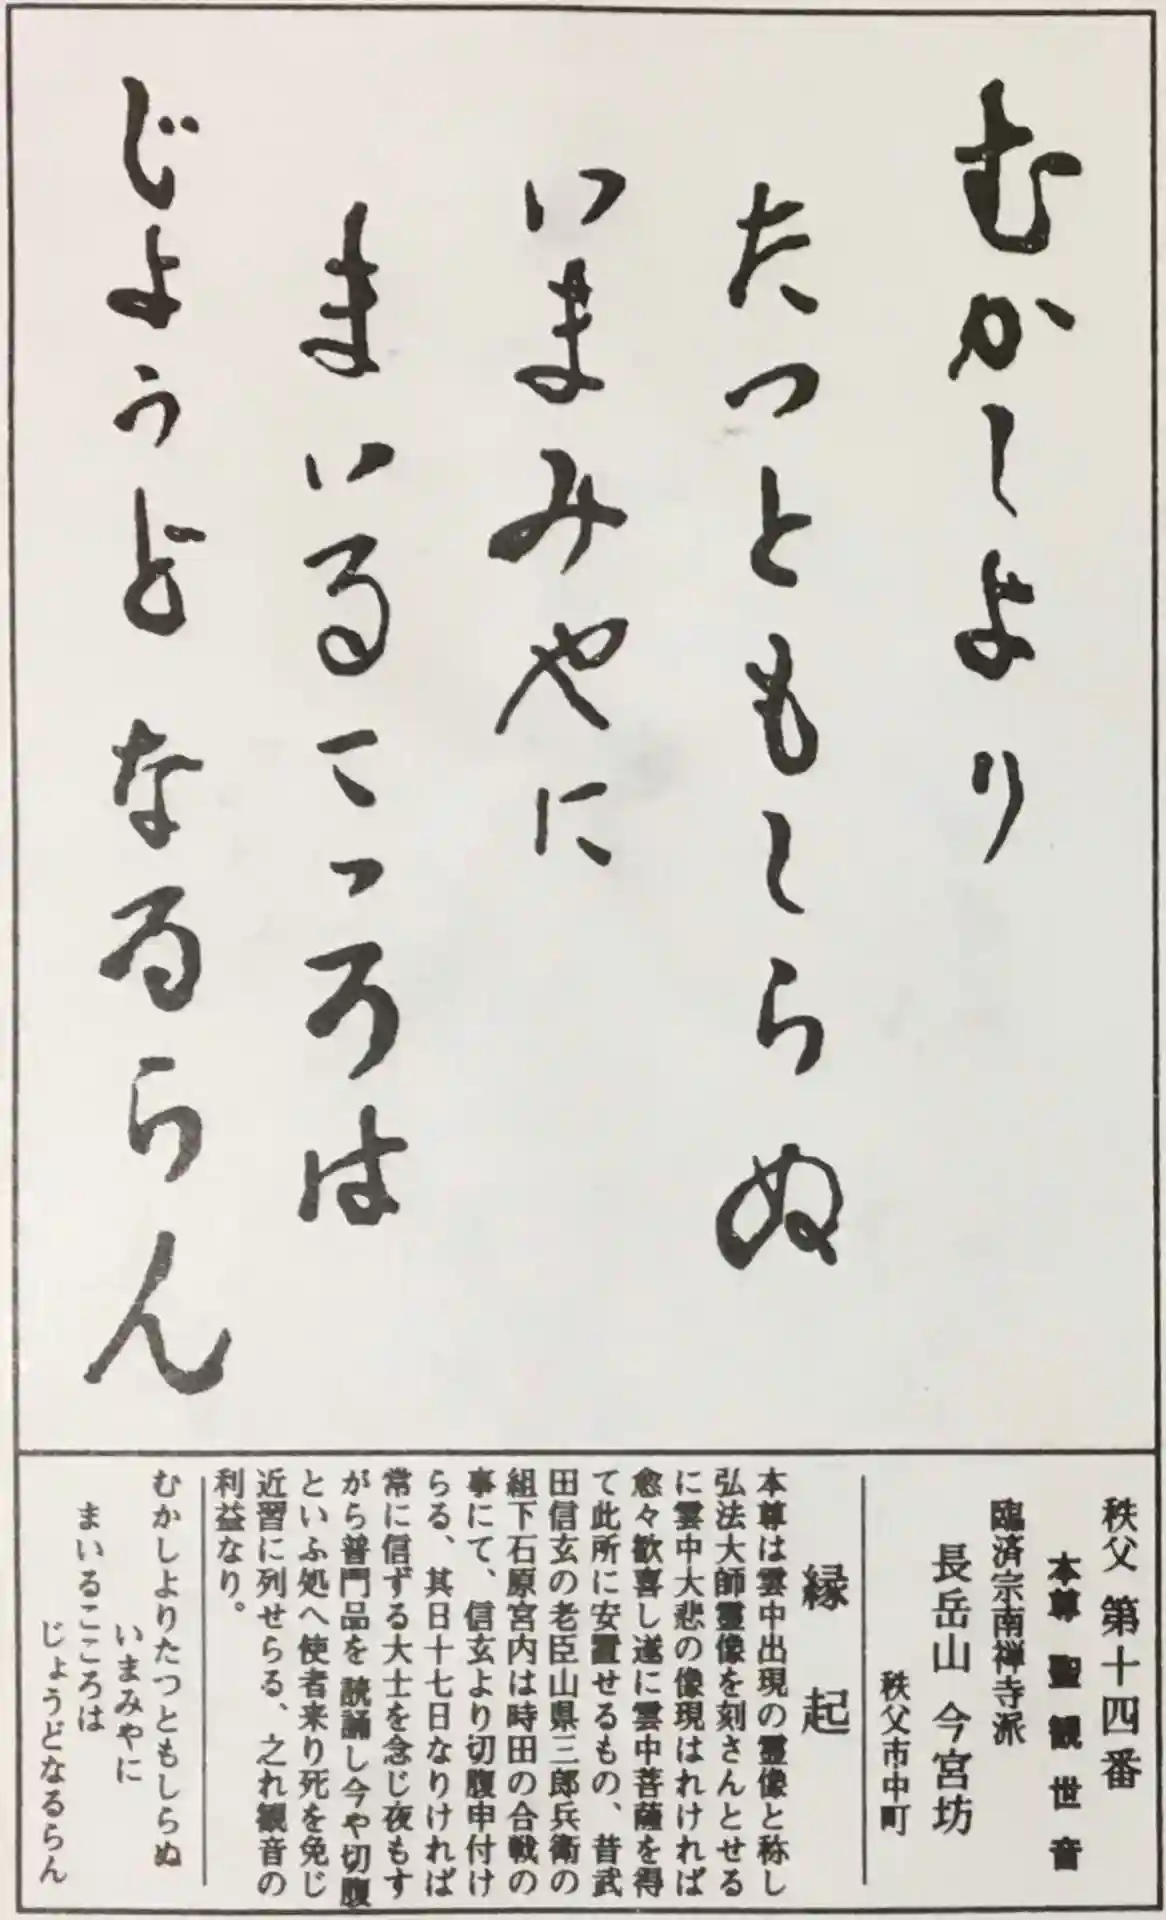 むかしより
たつともしらぬ
いまみやに
まいるこころは
じようどなるらん
秩父 第十四番
本尊 聖観世音
臨済宗南禅寺派
長岳山 今宮坊
秩父市中町
縁起
本尊は雲中出現の霊像と称し
弘法大師霊像を刻さんとせる
に雲中大悲の像現はれければ
愈々歓喜し遂に雲中菩薩を得
て此所に安置せるもの、昔武
田信玄の老臣山県三郎兵衛の
組下石原宮内は時田の合戦の
事にて、信玄より切腹申付け
らる、其日十七日なりければ
常に信ずる大士を念じ夜もす
がら普門品を読誦し今や切腹
といふ処へ使者来り死を免じ
近習に列せらる、之れ観音の
利益なり。
むかしよりたつともしらぬ
いまみやに
まいるこころは
じょうどなるらん